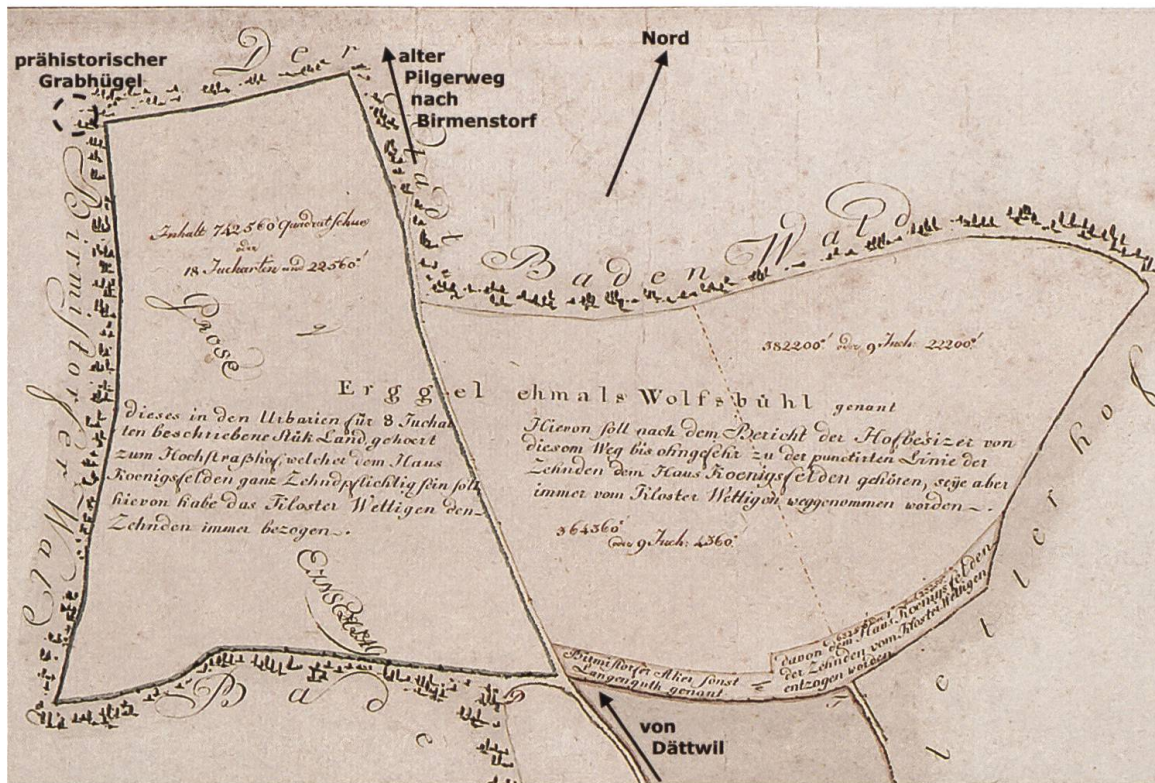 prähistorischer
Grabhügel
alter
Pilgerweg
nach
Birmenstorf
Nord
Der Stadt Baden Wald
Birmistorfer Wald
Inhalt 742560 Quadratschue
oder
18 Jucharten und 22560.'
Grose
382200.' oder 9 Juch: 22200.'
Erggel ehmals Wolfsbühl genant
dieses in den Urbarien für 8 Juchar
ten beschriebene Stük Land, gehoert
zum Hochstraßhof, welcher dem Haus
Koenigsfelden ganz Zehndpflichtig sein soll
hievon habe das Kloster Wettigen den
Zehnden immer bezogen.
Hievon soll nach dem Bericht der Hofbesizer von
diesem Weg bis ohngefehr zu der punctirten Linie der
Zehnden dem Haus Koenigsfelden gehören, seye aber
immer vom Kloster Wettigen weggenommen worden.
364360.'
oder 9 Juch: 4360.'
Birmistorfer Aker sonst
Langenguth genant
davon dem Haus Koenigsfelden
der Zehnden vom Kloster Wettigen
entzogen worden
Bade
von
Dättwil